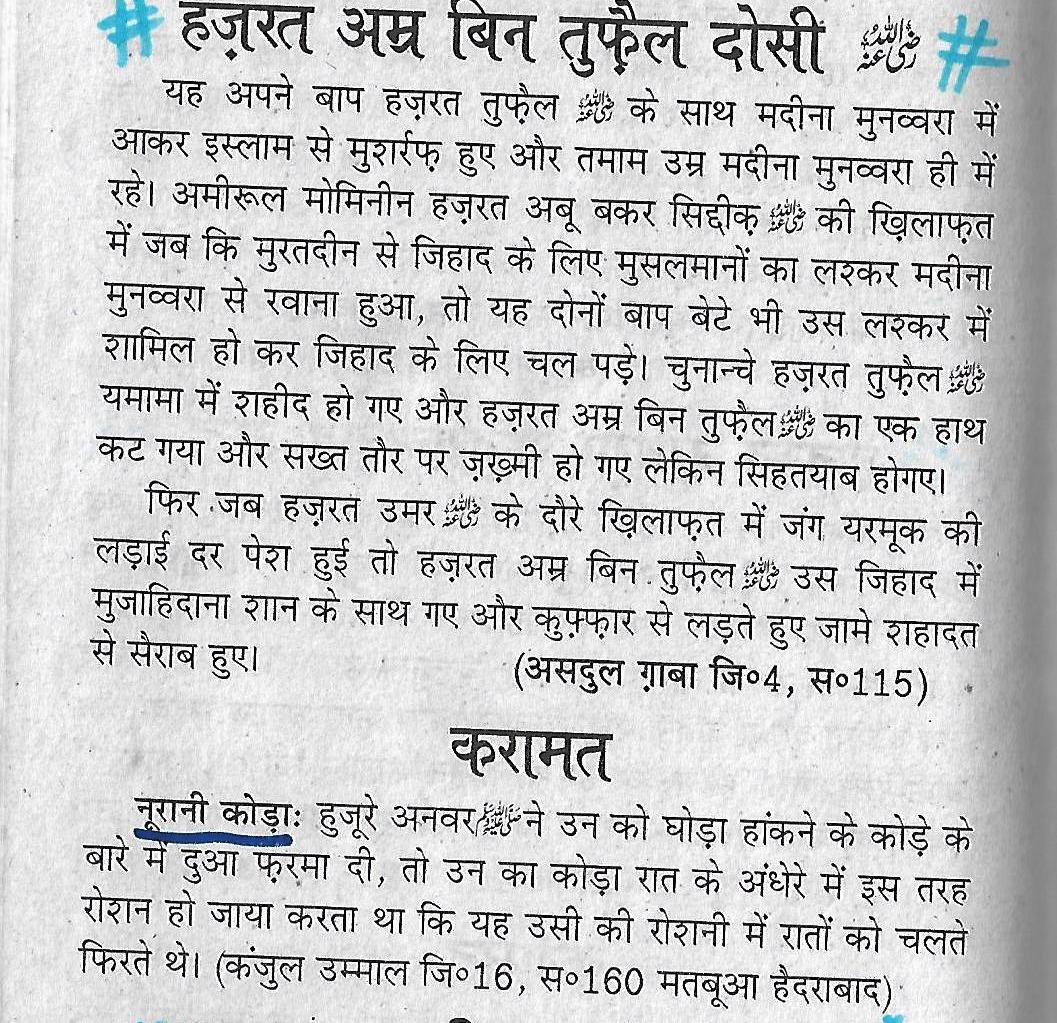 # हज़रत अम्र बिन तुफ़ैल दोसी رضی اللہ عنہ #
यह अपने बाप हज़रत तुफ़ैल رضی اللہ عنہ के साथ मदीना मुनव्वरा में
आकर इस्लाम से मुशर्रफ़ हुए और तमाम उम्र मदीना मुनव्वरा ही में
रहे। अमीरूल मोमिनीन हज़रत अबू बकर सिद्दीक़ رضی اللہ عنہ की ख़िलाफ़त
में जब कि मुरतदीन से जिहाद के लिए मुसलमानों का लश्कर मदीना
मुनव्वरा से रवाना हुआ, तो यह दोनों बाप बेटे भी उस लश्कर में
शामिल हो कर जिहाद के लिए चल पड़े। चुनान्चे हज़रत तुफ़ैल رضی اللہ عنہ
यमामा में शहीद हो गए और हज़रत अम्र बिन तुफ़ैल رضی اللہ عنہ का एक हाथ
कट गया और सख्त तौर पर ज़ख़्मी हो गए लेकिन सिहतयाब होगए।
फिर जब हज़रत उमर رضی اللہ عنہ के दौरे ख़िलाफ़त में जंग यरमूक की
लड़ाई दर पेश हुई तो हज़रत अम्र बिन तुफ़ैल رضی اللہ عنہ उस जिहाद में
मुजाहिदाना शान के साथ गए और कुफ़्फ़ार से लड़ते हुए जामे शहादत
से सैराब हुए। (असदुल ग़ाबा जि०4, स०115)
करामत
नूरानी कोड़ा: हुजूरे अनवर ﷺ ने उन को घोड़ा हांकने के कोड़े के
बारे में दुआ फ़रमा दी, तो उन का कोड़ा रात के अंधेरे में इस तरह
रोशन हो जाया करता था कि यह उसी की रोशनी में रातों को चलते
फिरते थे। (कंजुल उम्माल जि०16, स०160 मतबूआ हैदराबाद)